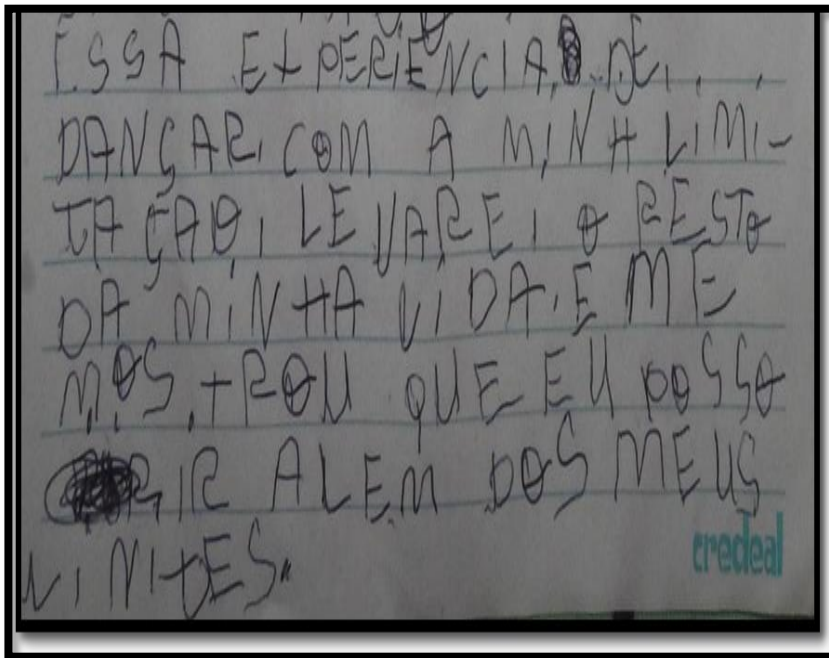 ESSA EXPERIÊNCIA DE
DANÇAR COM A MINH LIMI-
TAÇÃO, LEVAREI O RESTO
DA MINHA VIDA, E ME
MOSTROU QUE EU POSSO
IR ALEM DOS MEUS
LINITES.
credeal